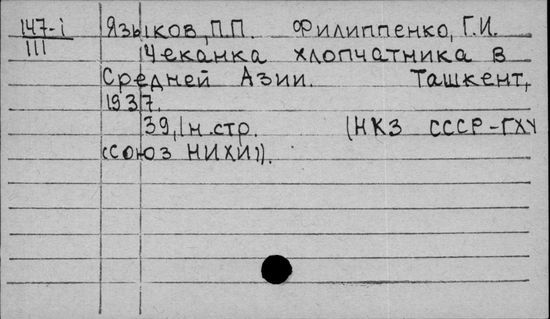 147-i Языков, П.П. Филиппенко, Г.И.
III Чеканка хлопчатника в
Средней Азии. Ташкент,
1937.
39, 1 н. стр. (НКЗ СССР-ГХУ
"Союз НИХИ").